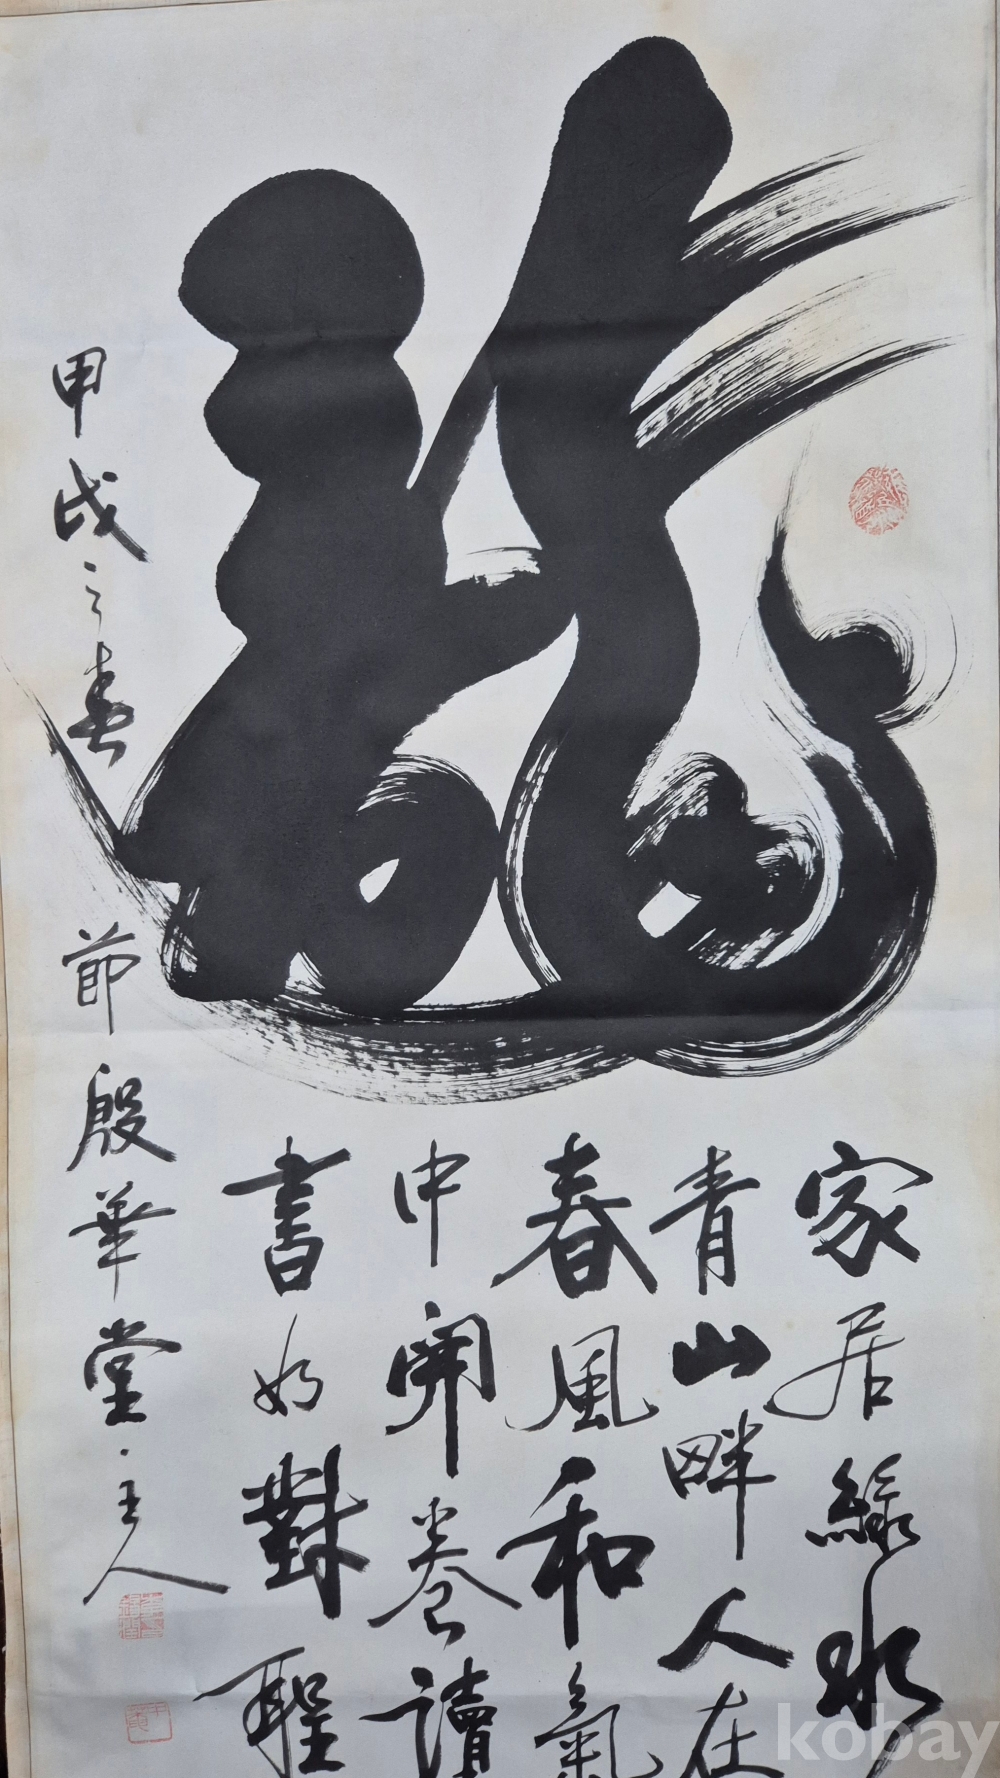 龍
家居綠水
青山畔人在
春風和氣
中開卷讀
書如對聖
甲戌之春節殷華堂主人
kobay